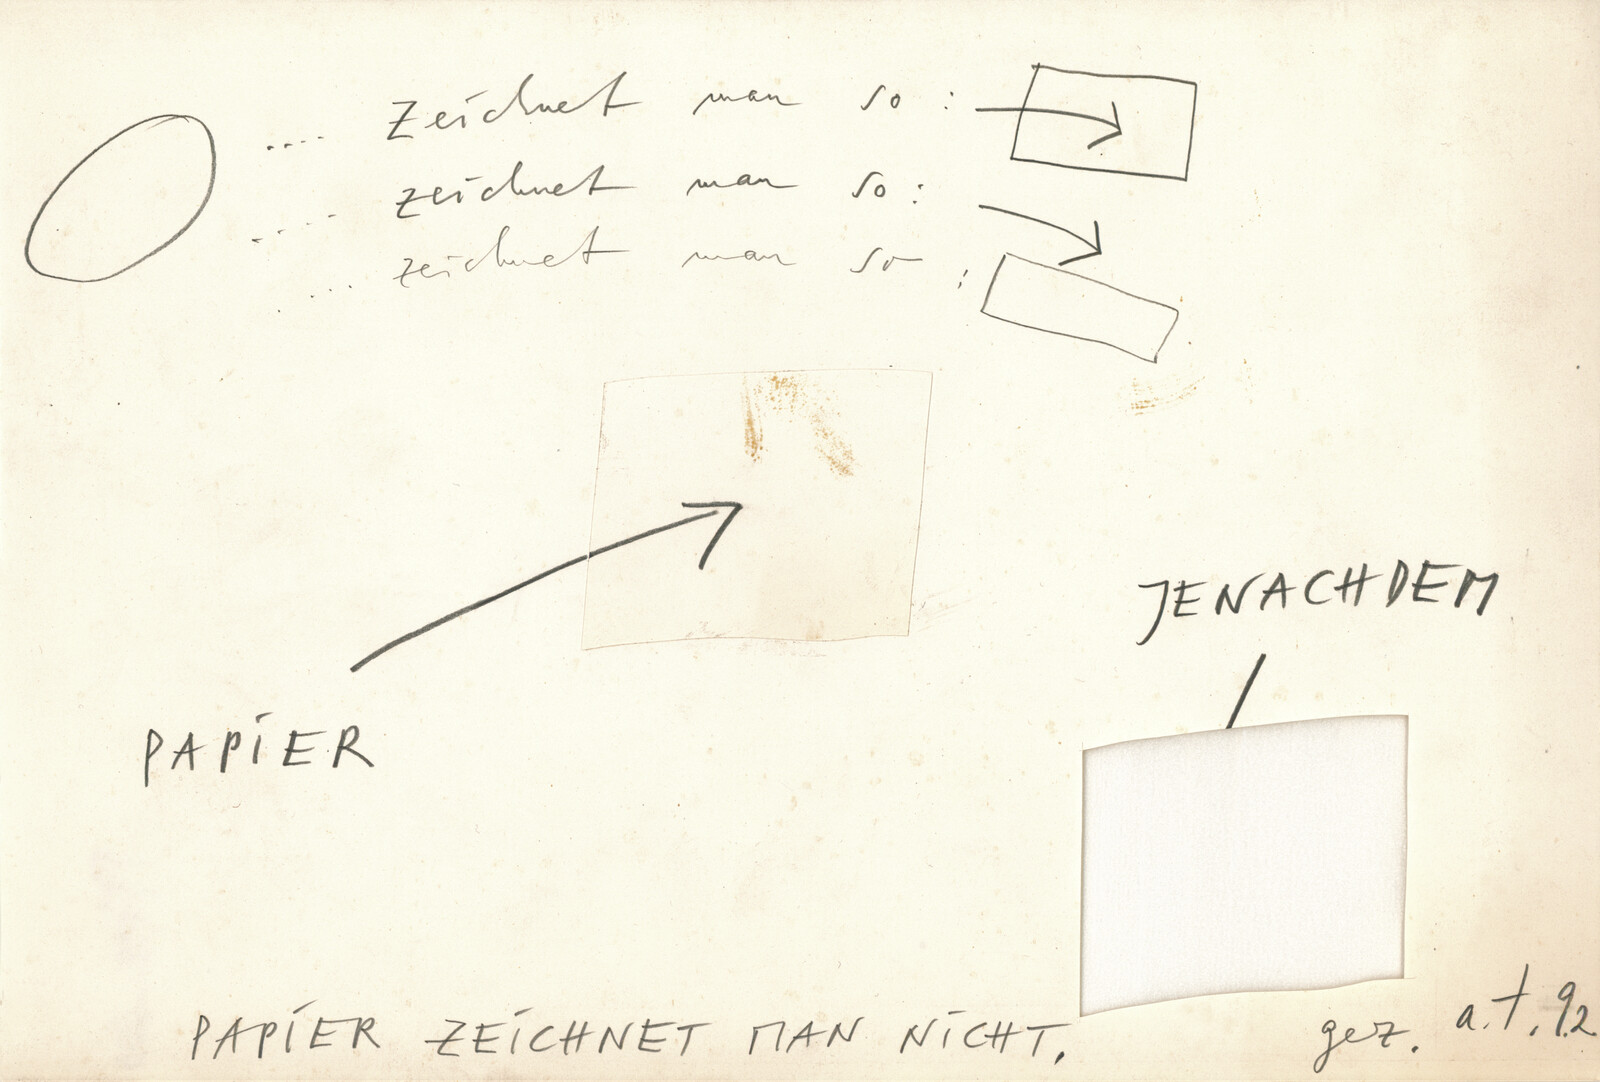 ... zeichnet man so :
... zeichnet man so :
... zeichnet man so :
JENACHDEM
PAPiER
PAPiER ZEiCHNET MAN NiCHT.
gez. a.t. 92